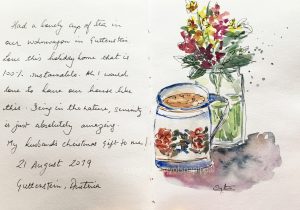 Had a lovely cup of tea in
our wohnwagon in Guttenstein
love this holiday home that is
100% sustainable. Ah I would
love to have our house like
this. Being in the nature, serenity
is just absolutely amazing
My husband's christmas gift to me!
21 August 2019
Guttenstein, Austria